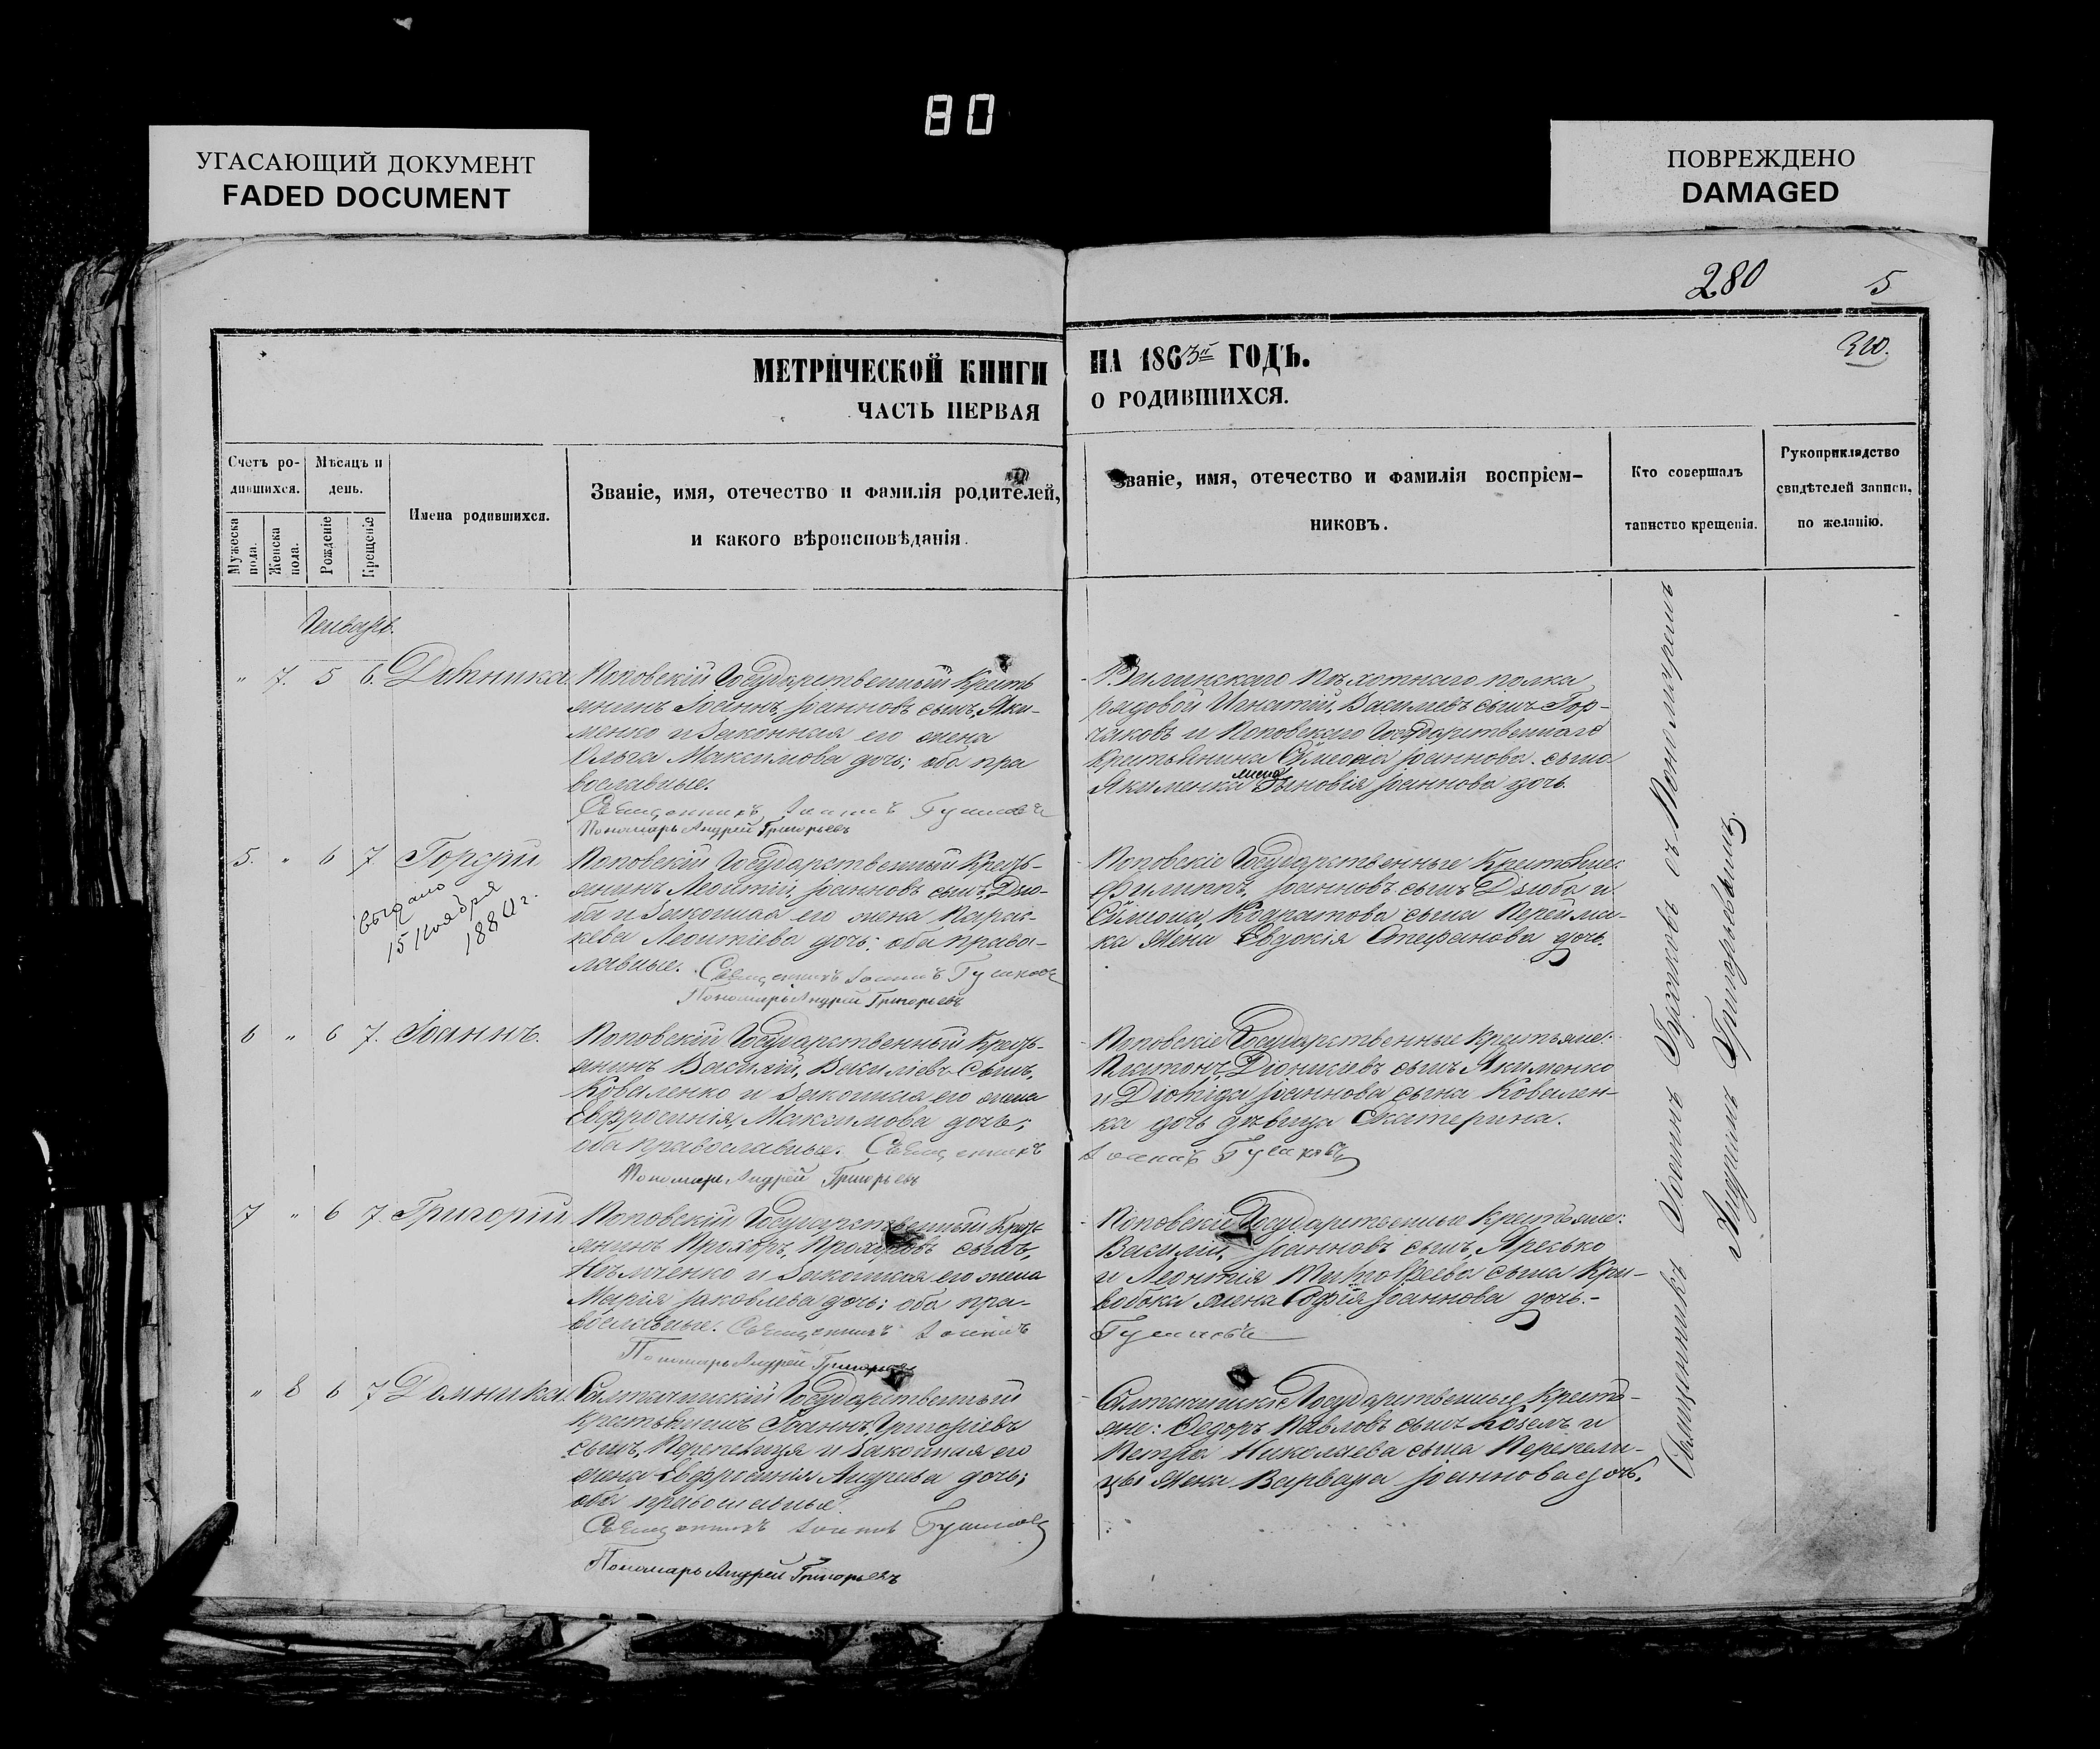 80
УГАСАЮЩИЙ ДОКУМЕНТ
FADED DOCUMENT
ПОВРЕЖДЕНО
DAMAGED
280
5
МЕТРИЧЕСКОЙ КНИГИ
ЧАСТЬ ПЕРВАЯ
НА 1863й ГОДЪ.
О РОДИВШИХСЯ.
Счетъ ро-
дившихся.
Мужеска пола.
Женска пола.
Мѣсяцъ и
день.
Рожденіе
Крещеніе
Имена родившихся.
Званіе, имя, отечество и фамилія родителей,
и какого вѣроисповѣданія.
Званіе, имя, отечество и фамилія воспріем-
никовъ.
Кто совершалъ
таинство крещенія.
Рукоприкладство
свидѣтелей записи,
по желанію.
Генварь.
" 7. 5 6. Домника.
Поповскій Государственный Кресть
янинъ Іоаннъ, Іоанновъ сынъ, Яки-
менко и Законная его жена
Ольга Максимова дочь; оба пра
вославные.
Священникъ Іоаннъ Гусаковъ
Пономарь Андрей Григорьевъ
Виленскаго Пѣхотнаго полка
рядовой Игнатій, Васильевъ сынъ Гор-
чаковъ и Поповскаго Государственнаго
крестьянина Симеона Іоаннова сына
Якименка жена Іоаннова дочь.
5. " 6 7. Гордій
Поповскій Государственный Кресть-
янинъ Леонтій, Іоанновъ сынъ, Дзю-
ба и Законная его жена Парас-
кева Леонтіева дочь; оба правос-
лавные. Священникъ Іоаннъ Гусаковъ
Пономарь Андрей Григорьевъ
выдано
15 Ноября
1880 г.
Поповскіе Государственные Крестьяне:
Филиппъ, Іоанновъ сынъ Дзюба и
Симеона, Кодратова сына
ка жена Евдокія Стефанова дочь.
6 " 6 7. Іоаннъ.
Поповскій Государственный Кресть-
янинъ Василій, Васильевъ сынъ,
Коваленко и Законная его жена
Евфросинія, Максимова дочь;
оба православные. Священникъ
Пономарь Андрей Григорьевъ
Поповскіе Государственные Крестьяне:
Платонъ, Діонисіевъ сынъ Якименко
и Діомида Іоаннова сына Ковален-
ка дочь дѣвица Екатерина.
Іоаннъ Гусаковъ
7 " 6 7. Григорій
Поповскій Государственный Кресть
янинъ Прохоръ, Прохоровъ сынъ,
Нѣмченко и Законная его жена
Марія Іаковлева дочь; оба пра-
вославные. Священникъ Іоаннъ
Пономарь Андрей Григорьевъ
Поповскіе Государственные Крестьяне:
Василій, Іоанновъ сынъ, Яресько
и Леонтія Тимофеева сына Кри-
вобока жена Софія Іоаннова дочь.-
Гусаковъ
" 8 6 7 Домника.
Государственный
крестьянинъ Іоаннъ, Григоріевъ
сынъ, Перепелиця и Законная его
жена Евфросинія Андреева дочь;
оба православные.
Священникъ Іоаннъ Гусаковъ
Пономарь Андрей Григорьевъ
Государственные Кресть-
яне: Федоръ Павловъ сынъ Козелъ и
Петра Николаева сына Перепели-
цы жена Варвара Іоаннова дочь.
Священникъ Іоаннъ Гусаковъ съ Пономаремъ
Андреемъ Григорьевымъ.